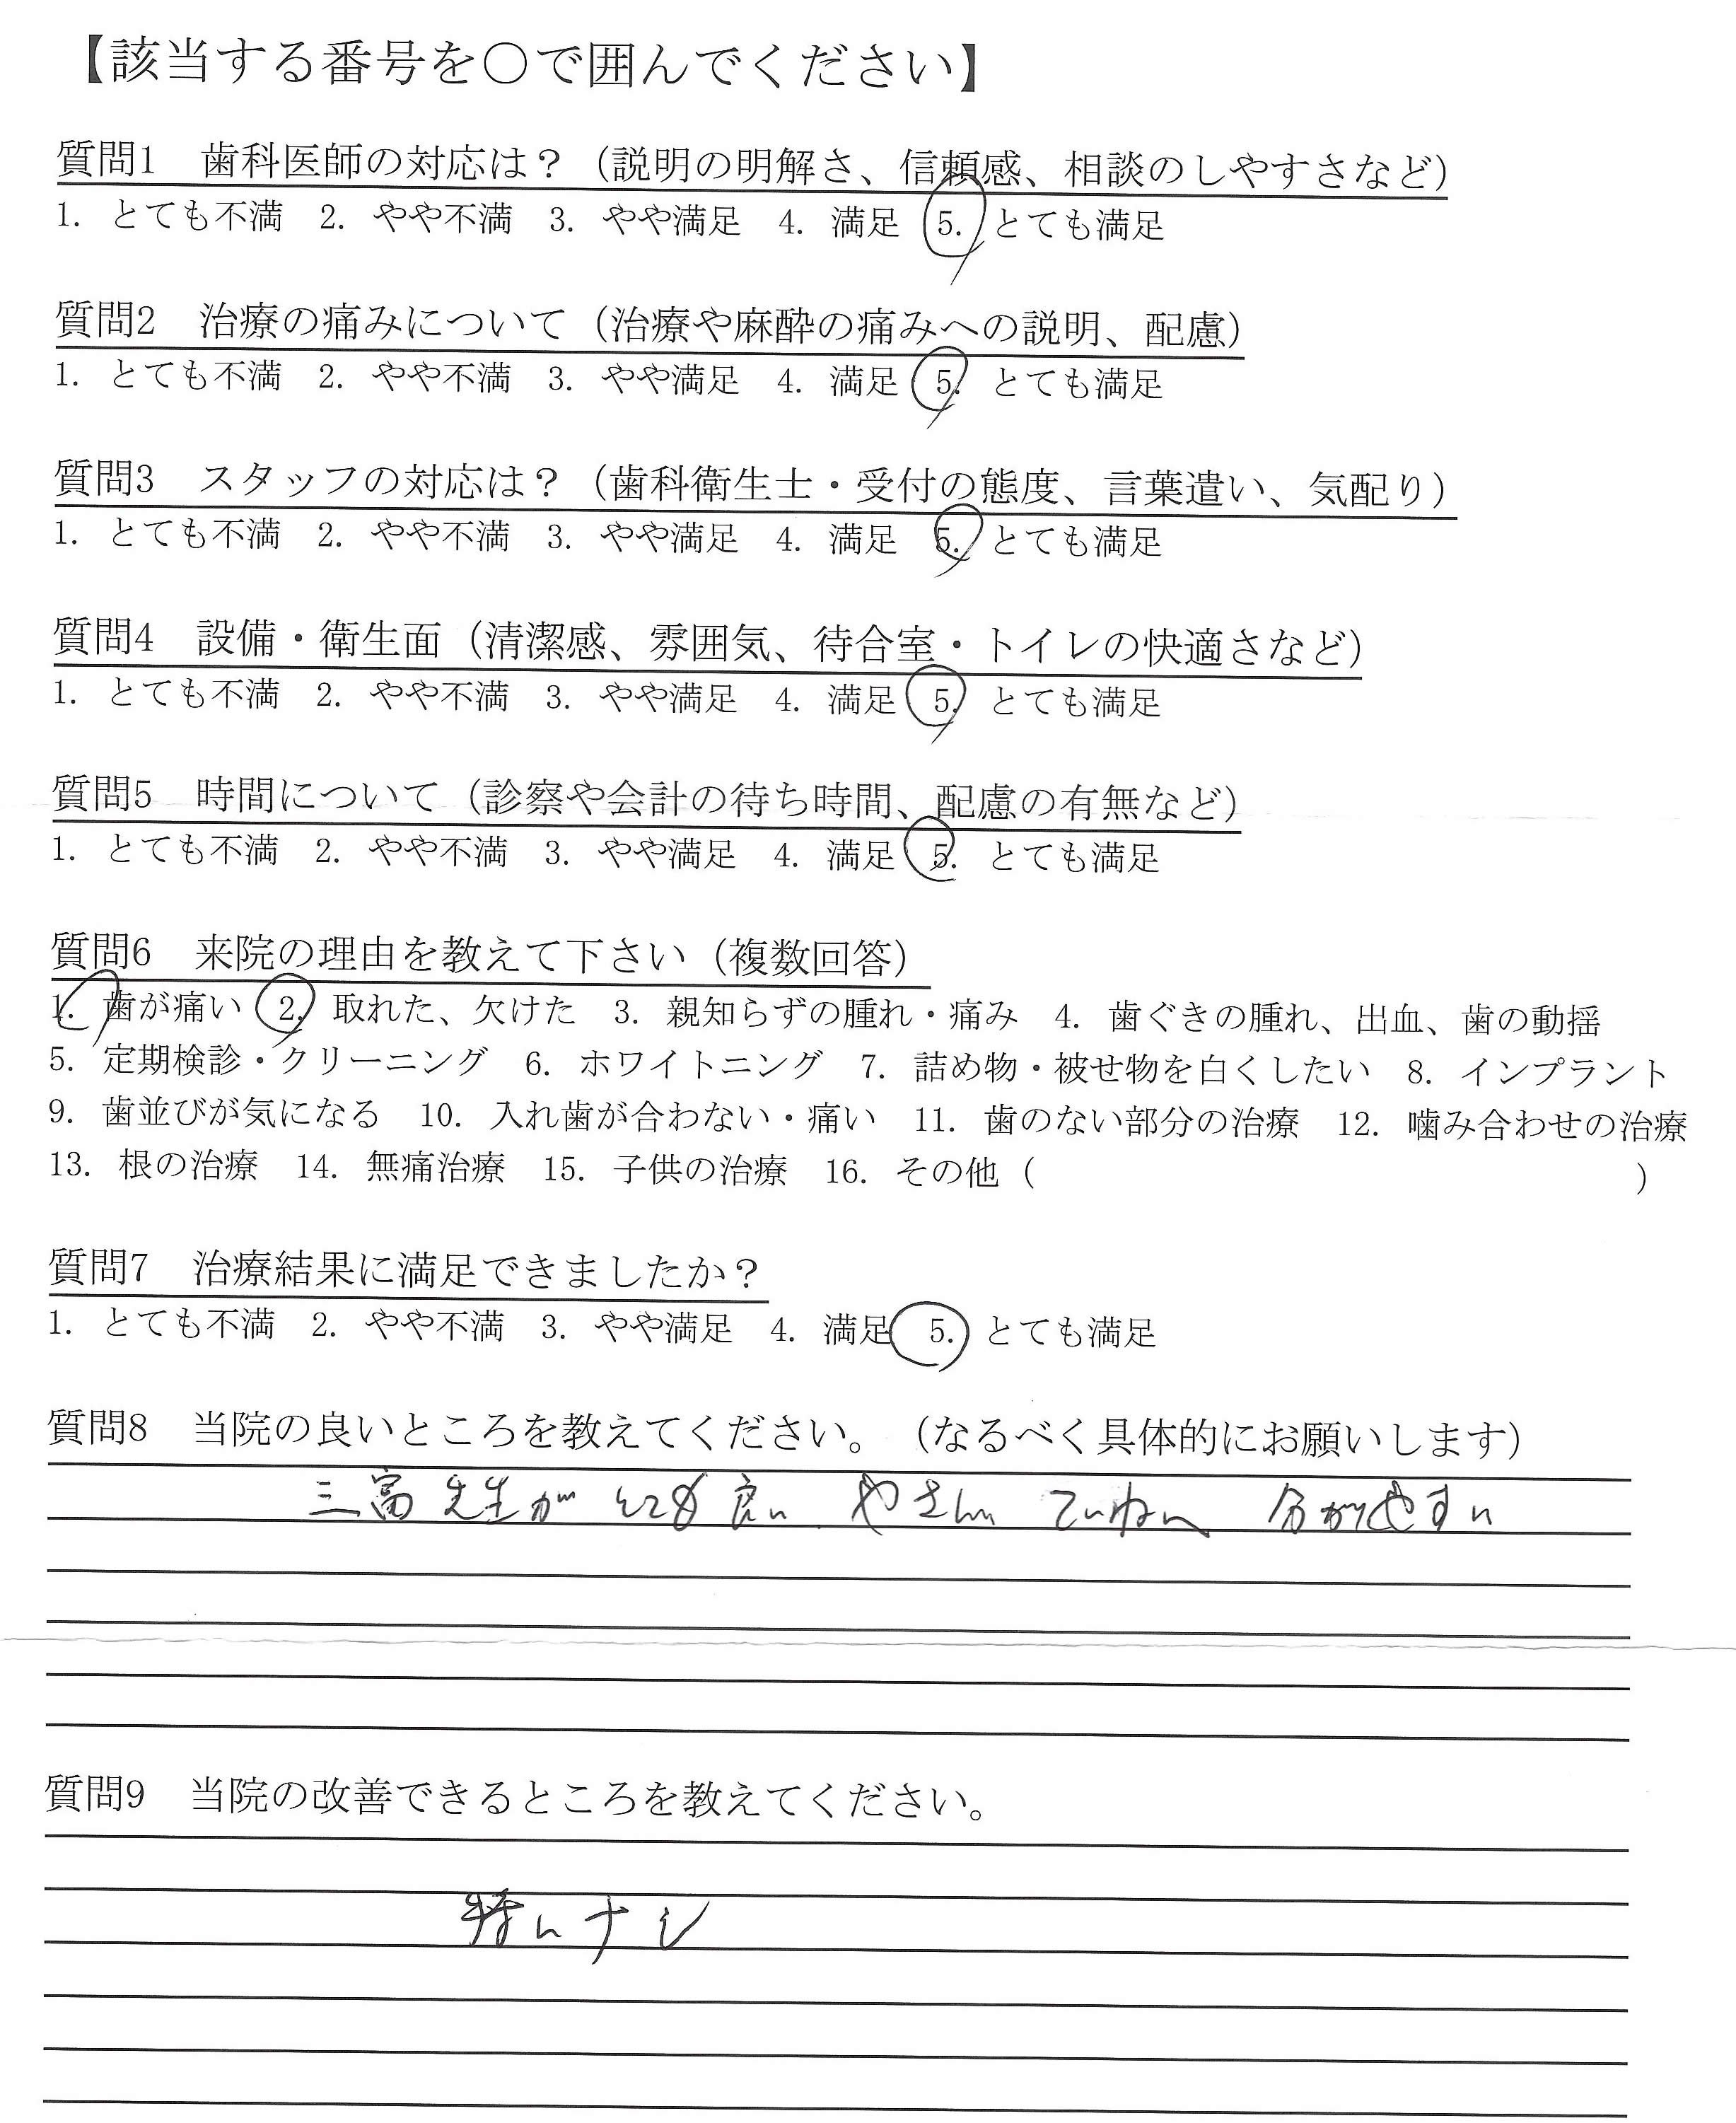 【該当する番号を○で囲んでください】
質問1 歯科医師の対応は?(説明の明解さ、信頼感、相談のしやすさなど)
1. とても不満 2. やや不満 3. やや満足 4. 満足 5. とても満足
質問2 治療の痛みについて(治療や麻酔の痛みへの説明、配慮)
1. とても不満 2. やや不満 3. やや満足 4. 満足 5. とても満足
質問3 スタッフの対応は?(歯科衛生士・受付の態度、言葉遣い、気配り)
1. とても不満 2. やや不満 3. やや満足 4. 満足 5. とても満足
質問4 設備・衛生面(清潔感、雰囲気、待合室・トイレの快適さなど)
1. とても不満 2. やや不満 3. やや満足 4. 満足 5. とても満足
質問5 時間について(診察や会計の待ち時間、配慮の有無など)
1. とても不満 2. やや不満 3. やや満足 4. 満足 5. とても満足
質問6 来院の理由を教えて下さい(複数回答)
1. 歯が痛い 2. 取れた、欠けた 3. 親知らずの腫れ・痛み 4. 歯ぐきの腫れ、出血、歯の動揺
5. 定期検診・クリーニング 6. ホワイトニング 7. 詰め物・被せ物を白くしたい 8. インプラント
9. 歯並びが気になる 10. 入れ歯が合わない・痛い 11. 歯のない部分の治療 12. 噛み合わせの治療
13. 根の治療 14. 無痛治療 15. 子供の治療 16. その他( )
質問7 治療結果に満足できましたか?
1. とても不満 2. やや不満 3. やや満足 4. 満足 5. とても満足
質問8 当院の良いところを教えてください。(なるべく具体的にお願いします)
三富先生がとても良い やさしい ていねい 分かりやすい
質問9 当院の改善できるところを教えてください。
特にナシ